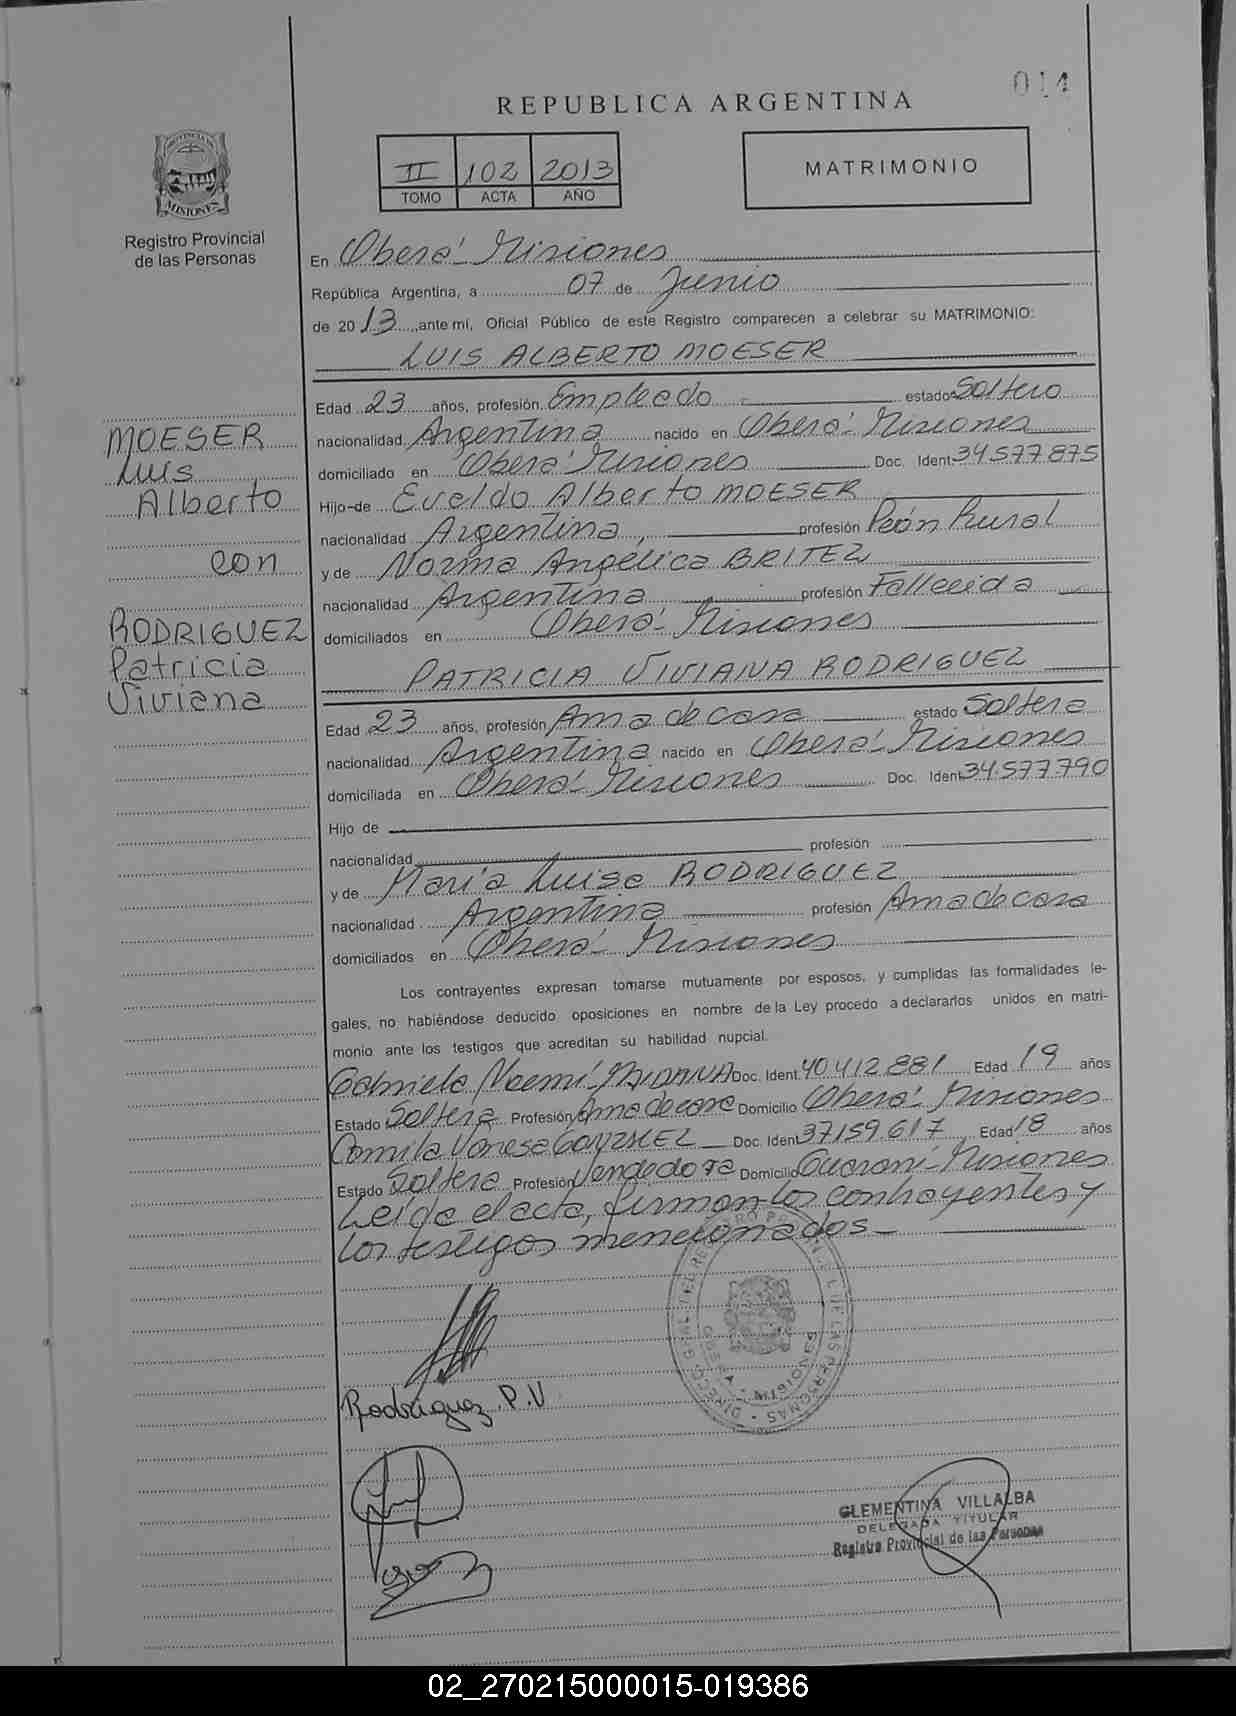 014
REPUBLICA ARGENTINA
II 102 2013
TOMO ACTA AÑO
MATRIMONIO
PROVINCIA DE
MISIONES
Registro Provincial
de las Personas
En Oberá - Misiones
República Argentina, a 07 de Junio
de 2013, ante mí, Oficial Público de este Registro comparecen a celebrar su MATRIMONIO:
LUIS ALBERTO MOESER
Edad 23 años, profesión Empleado estado Soltero
nacionalidad Argentina nacido en Oberá - Misiones
domiciliado en Oberá Misiones Doc. Ident. 34.577.875
Hijo de Eveldo Alberto MOESER
nacionalidad Argentina, profesión Peón Rural
y de Norma Angélica BRITEZ
nacionalidad Argentina profesión Fallecida
domiciliados en Oberá - Misiones
PATRICIA VIVIANA RODRIGUEZ
Edad 23 años, profesión Ama de casa estado Soltera
nacionalidad Argentina nacido en Oberá - Misiones
domiciliada en Oberá - Misiones Doc. Ident. 34.577.790
Hijo de
nacionalidad profesión
y de María Luisa RODRIGUEZ
nacionalidad Argentina profesión Ama de casa
domiciliados en Oberá - Misiones
Los contrayentes expresan tomarse mutuamente por esposos, y cumplidas las formalidades le-
gales, no habiéndose deducido oposiciones en nombre de la Ley procedo a declararlos unidos en matri-
monio ante los testigos que acreditan su habilidad nupcial.
Gabriela Noemí Doc. Ident. 40.412.881 Edad 19 años
Estado Soltera Profesión Ama de casa Domicilio Oberá - Misiones
Camila Vanesa Doc. Ident. 37.159.617 Edad 18 años
Estado Soltera Profesión Vendedora Domicilio Guaraní - Misiones
Leída el acta, firman los contrayentes y
los testigos mencionados -
MOESER
Luis
Alberto
con
RODRIGUEZ
Patricia
Viviana
Rodriguez. P.V
OBERA - MISIONES
CLEMENTINA VILLALBA
DELEGADA TITULAR
Registro Provincial de las Personas
02_270215000015-019386